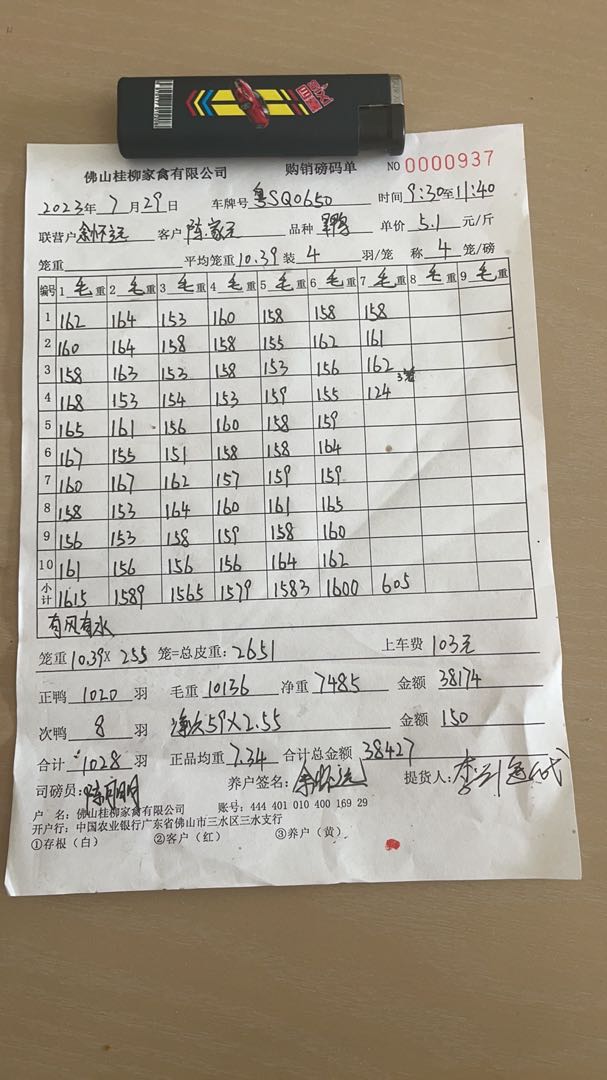 佛山桂柳家禽有限公司 购销磅码单 NO 0000937
2023年 7月 29日 车牌号 粤SQ0650 时间 9:30至11:40
联营户 余怀远 客户 陈家 品种 单价 5.1 元/斤
笼重 平均笼重 10.39 装 4 羽/笼 称 4 笼/磅
编号 1 毛重 2 毛重 3 毛重 4 毛重 5 毛重 6 毛重 7 毛重 8 毛重 9 毛重
1 162 164 153 160 158 158 158
2 160 164 158 158 155 162 161
3 158 163 153 158 153 156 162
4 168 153 154 153 159 155 124 3笼
5 165 161 156 160 158 159
6 167 155 151 158 158 164
7 160 167 162 157 159 159
8 158 153 164 160 161 165
9 156 153 158 159 158 160
10 161 156 156 156 164 162
小计 1615 1589 1565 1579 1583 1600 605
有风有水
笼重 10.39× 255 笼=总皮重: 2651 上车费 103元
正鸭 1020 羽 毛重 10136 净重 7485 金额 38174
次鸭 8 羽 59×2.55 金额 150
合计 1028 羽 正品均重 7.34 合计总金额 38427
司磅员: 养户签名: 余怀远 提货人:
户 名: 佛山桂柳家禽有限公司 账号: 444 401 010 400 169 29
开户行: 中国农业银行广东省佛山市三水区三水支行
①存根（白） ②客户（红） ③养户（黄）